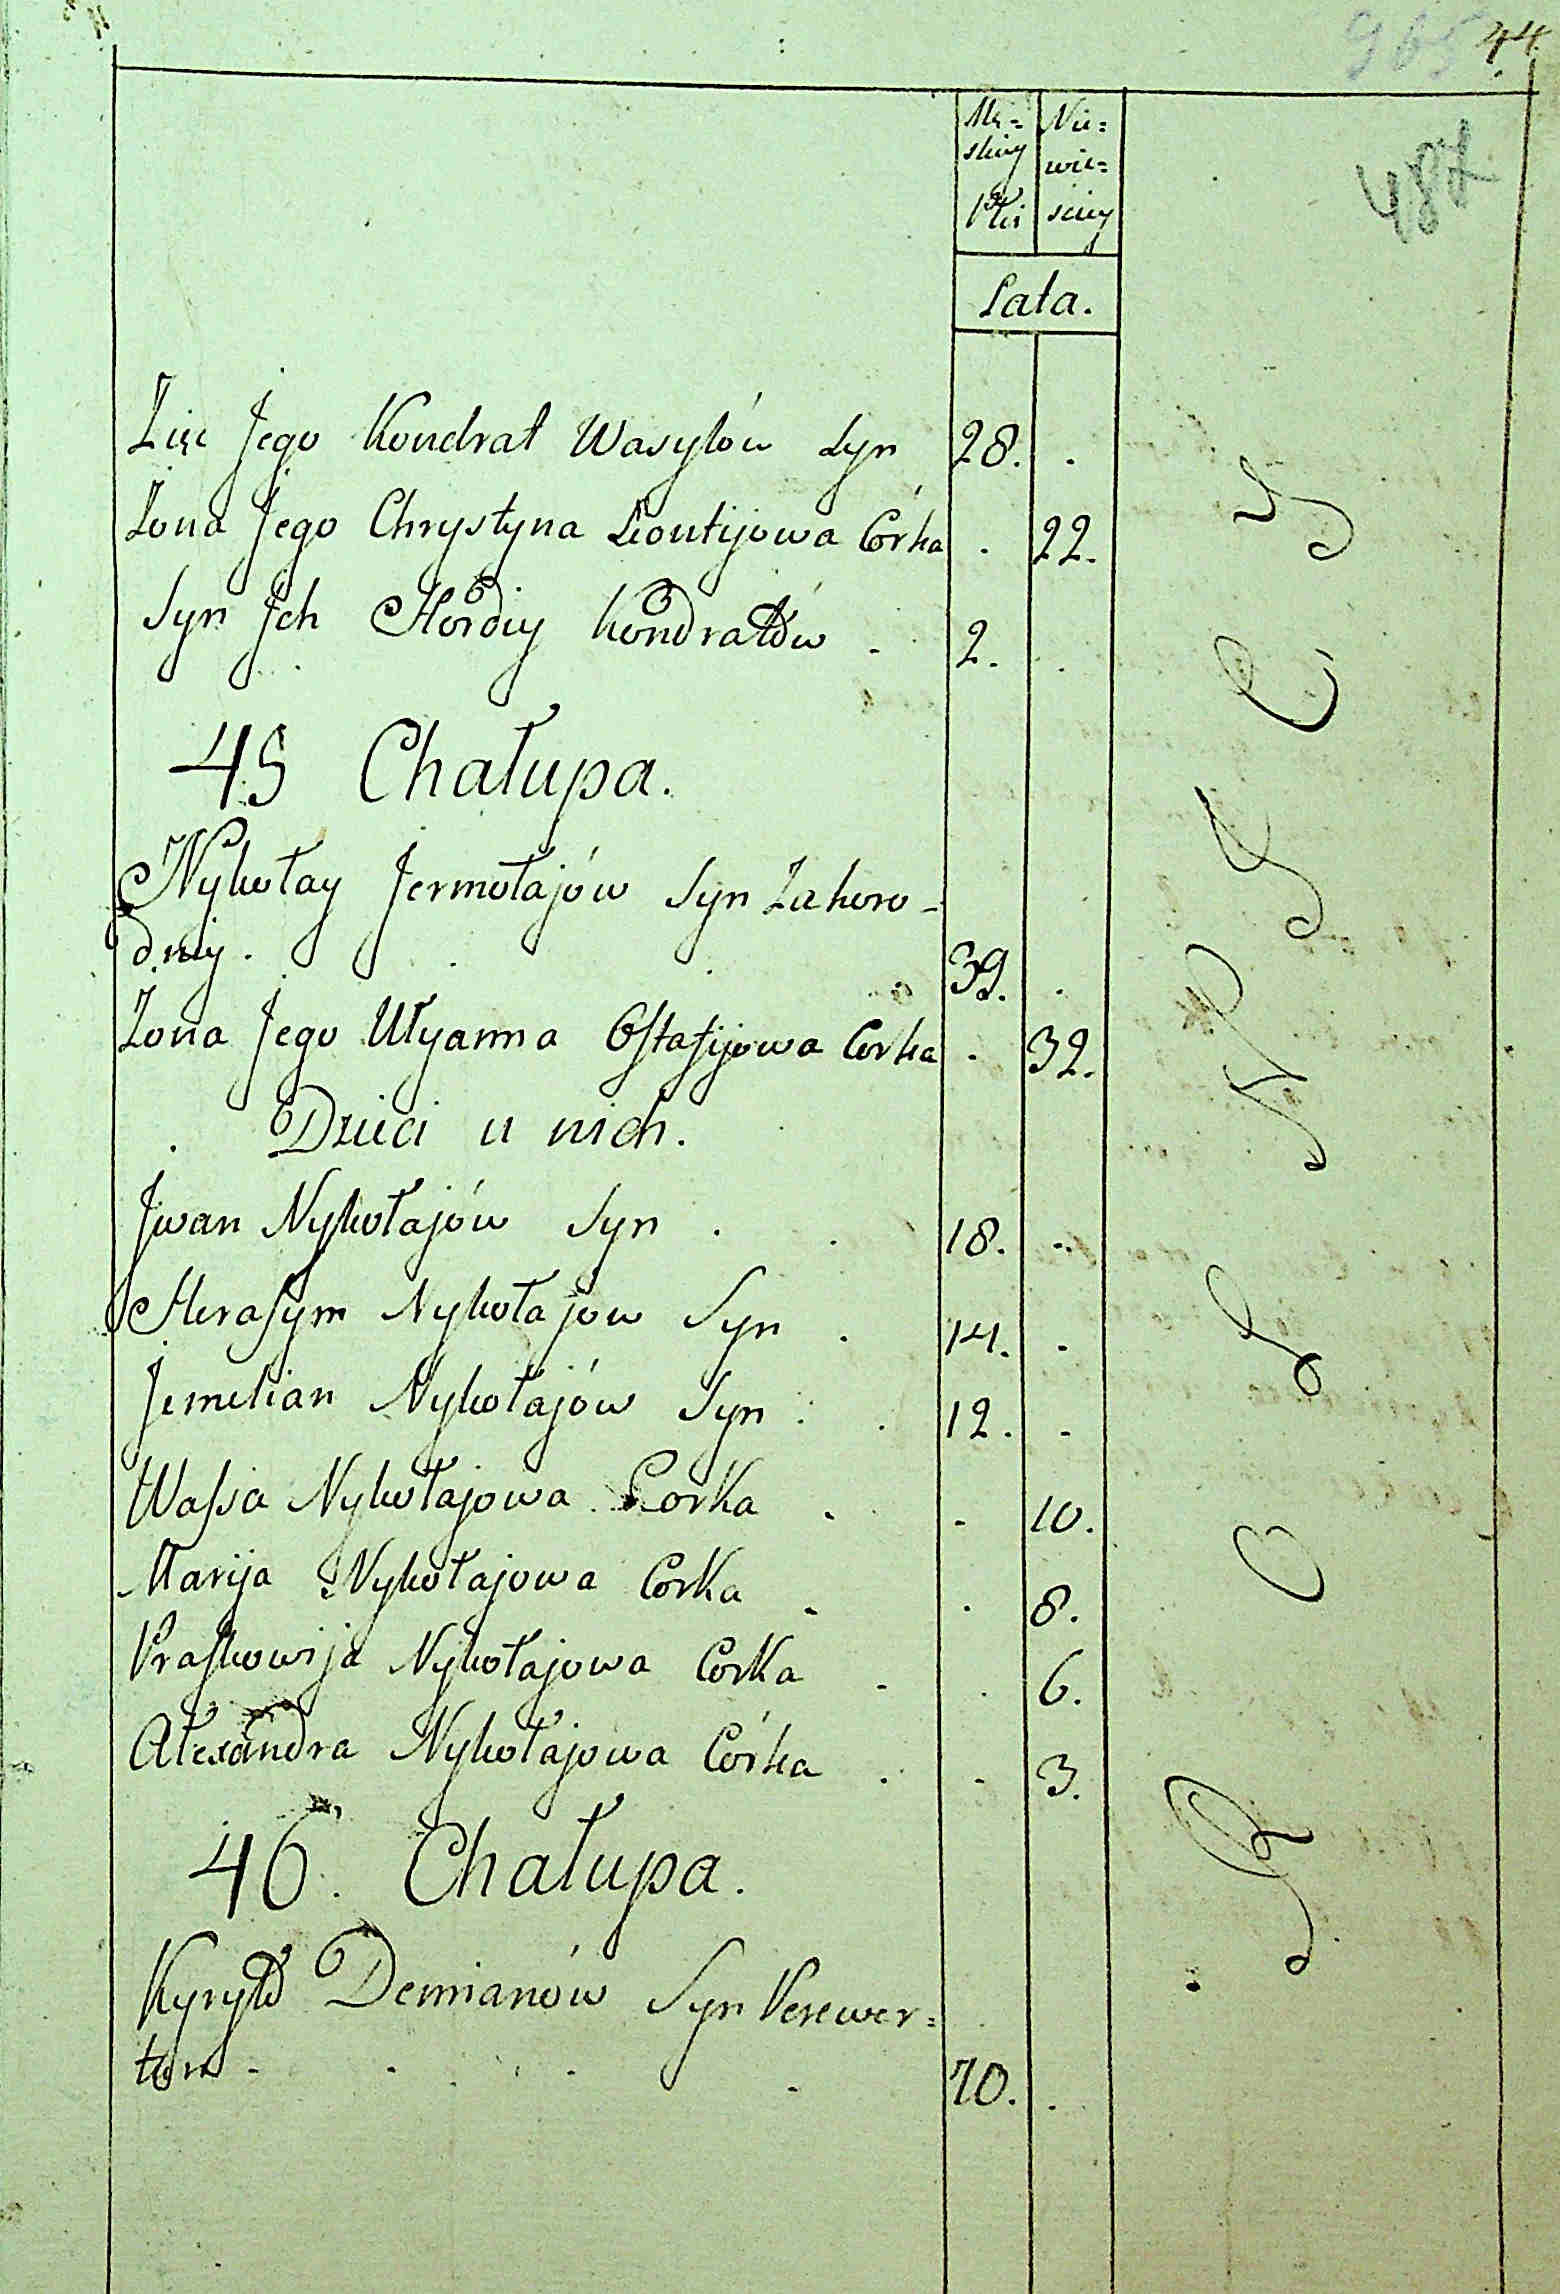 44
487
Mę=
skiey
Płci
Nie=
wie=
sciey
Lata.
Zięc Jego Kondrat Wasylów Syn 28. .
Zona Jego Chrystyna Leontijowa Córka . 22.
Syn Ich Hordiy Kondratów . 2. .
45 Chałupa.
Nykołay Jermołajów Syn Zahoro-
dniy. 39. .
Żona Jego Ułyanna Ostafijowa Corka . 32.
Dzieci u nich.
Jwan Nykołajów Syn . . 18. .
Herasym Nykołajow Syn . 14. .
Jemelian Nykołajów Syn . . 12. .
Wassa Nykołajowa Corka . . 10.
Marija Nykołajowa Corka . . 8.
Praskowija Nykołajowa Corka . . 6.
Ałexandra Nykołajowa Córka . . 3.
46. Chałupa.
Kyryło Demianów Syn Perewer=
tun . . . . 70. .